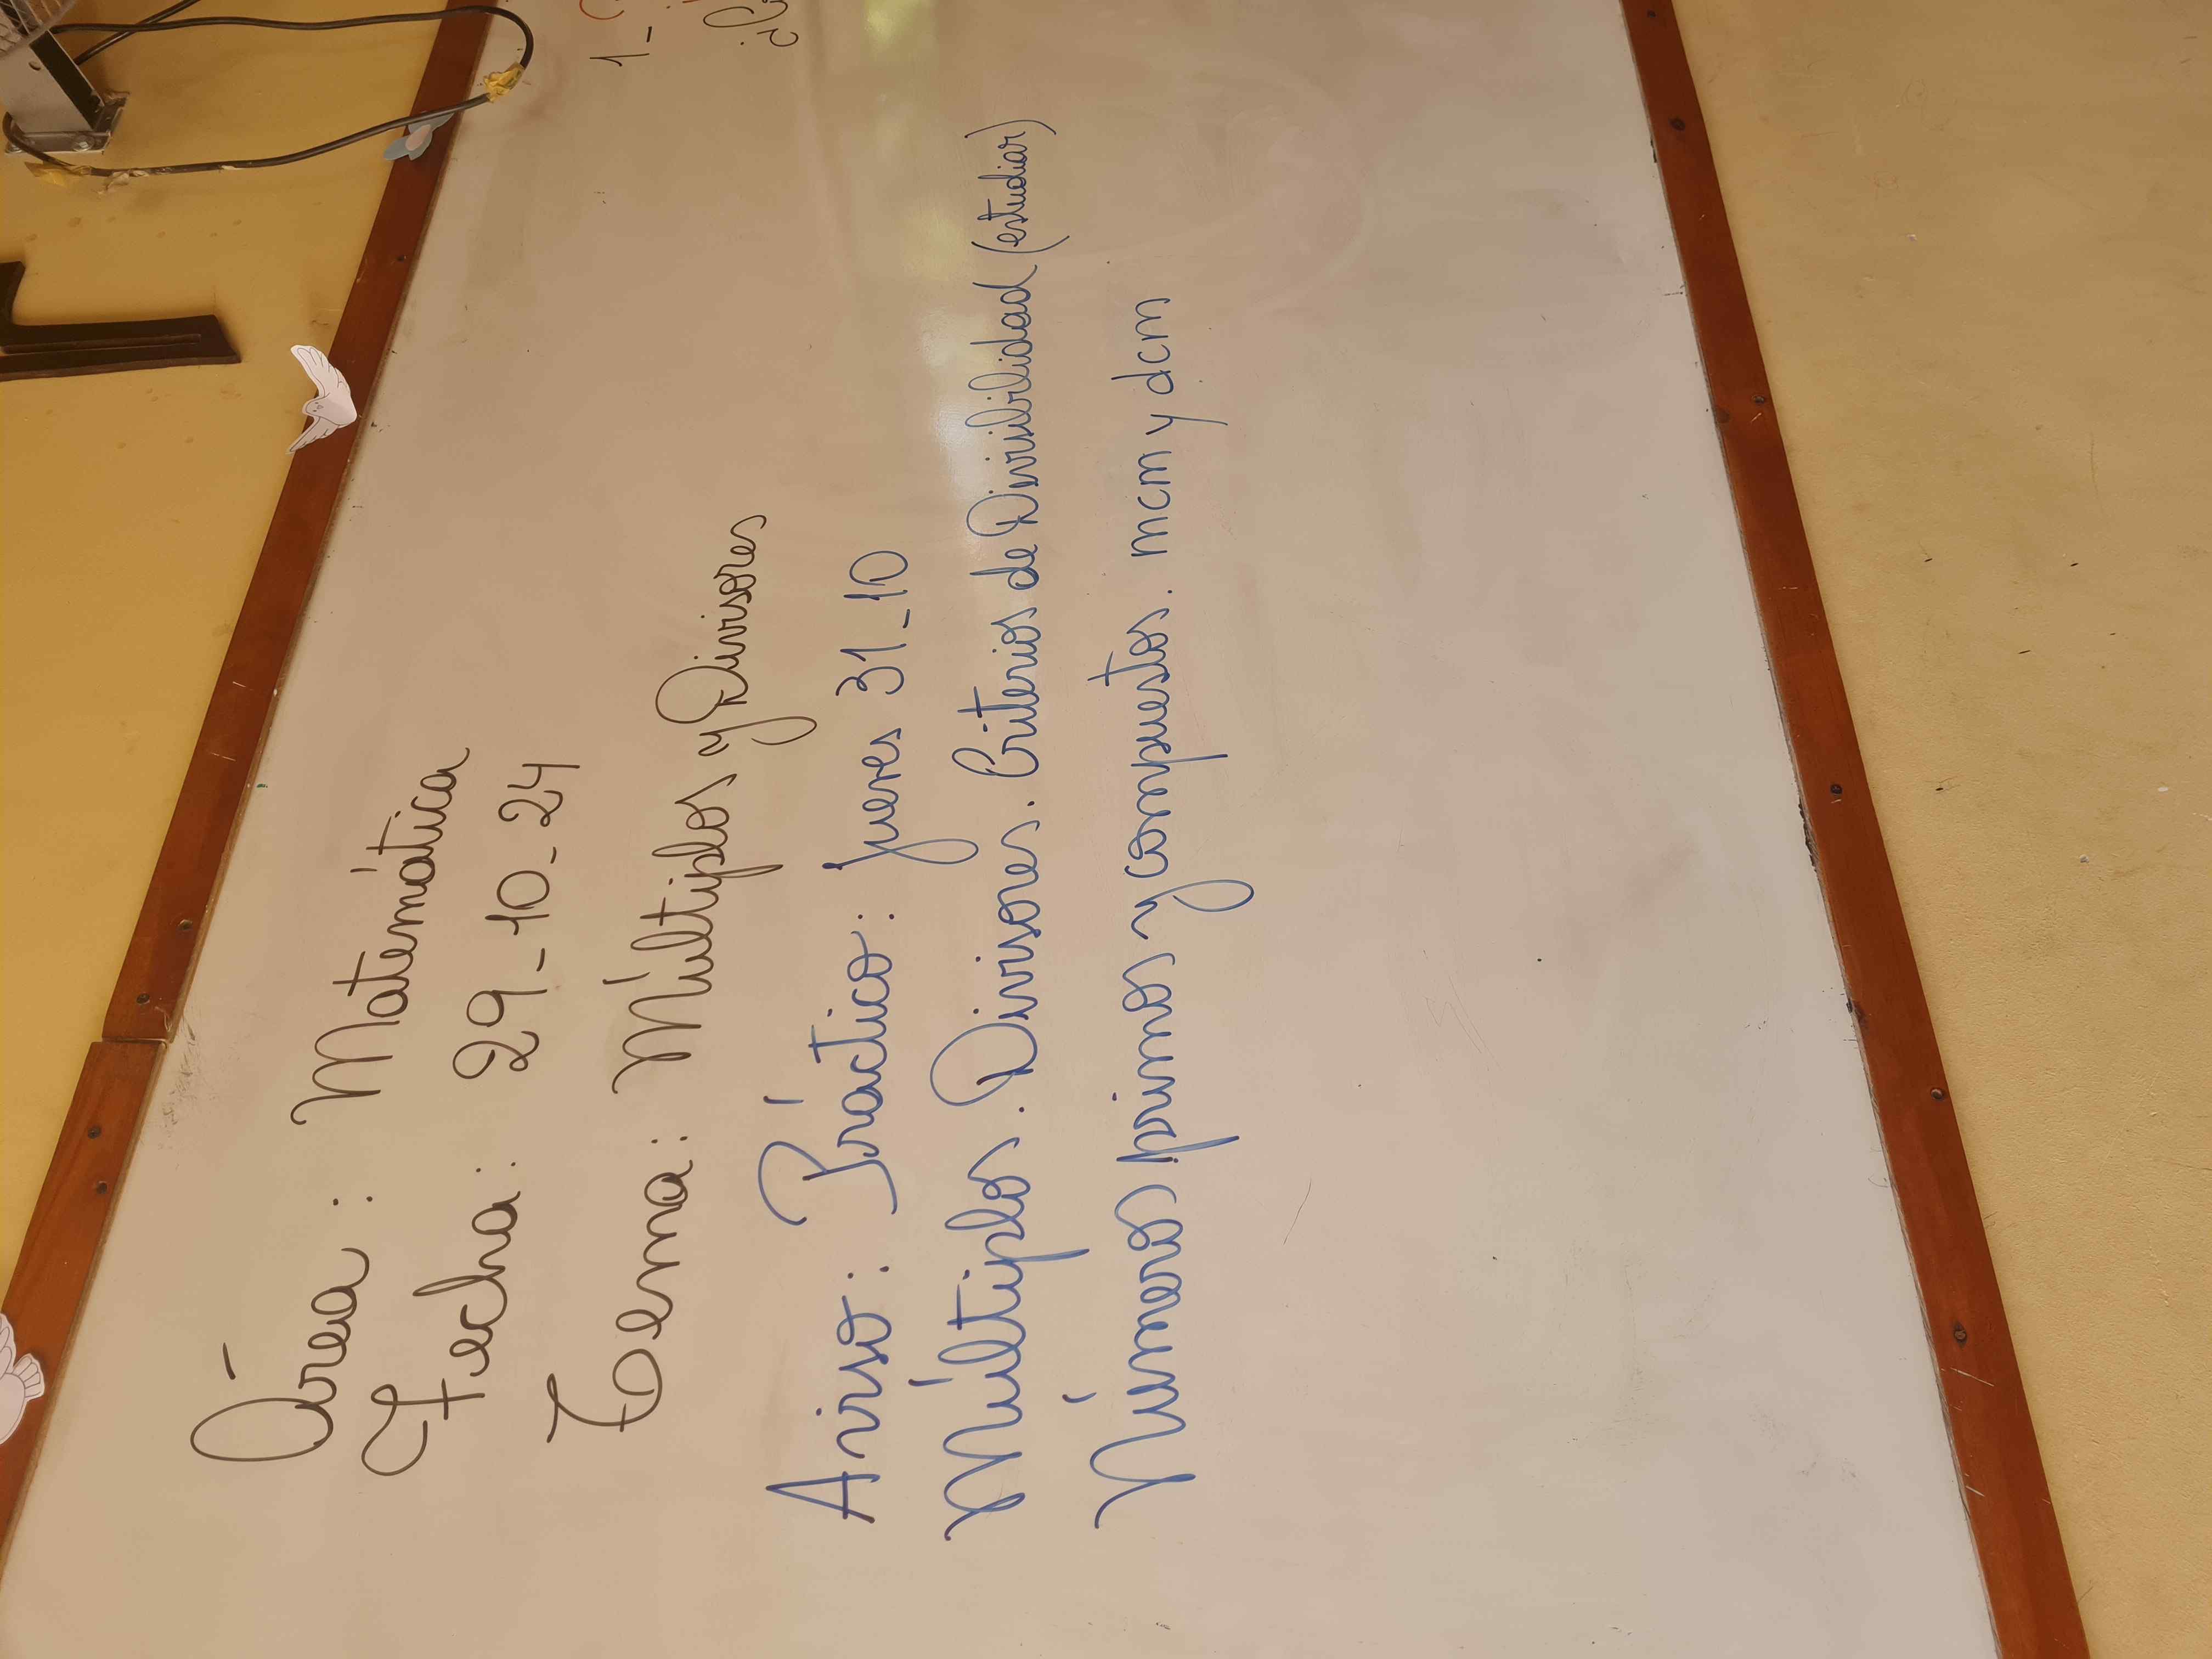 Área: Matemática
Fecha: 29-10-24
Tema: Múltiplos y Divisores
Aviso: Práctico: jueves 31-10
Múltiplos. Divisores. Criterios de Divisibilidad (estudiar)
Números primos y compuestos. mcm y dcm
1-